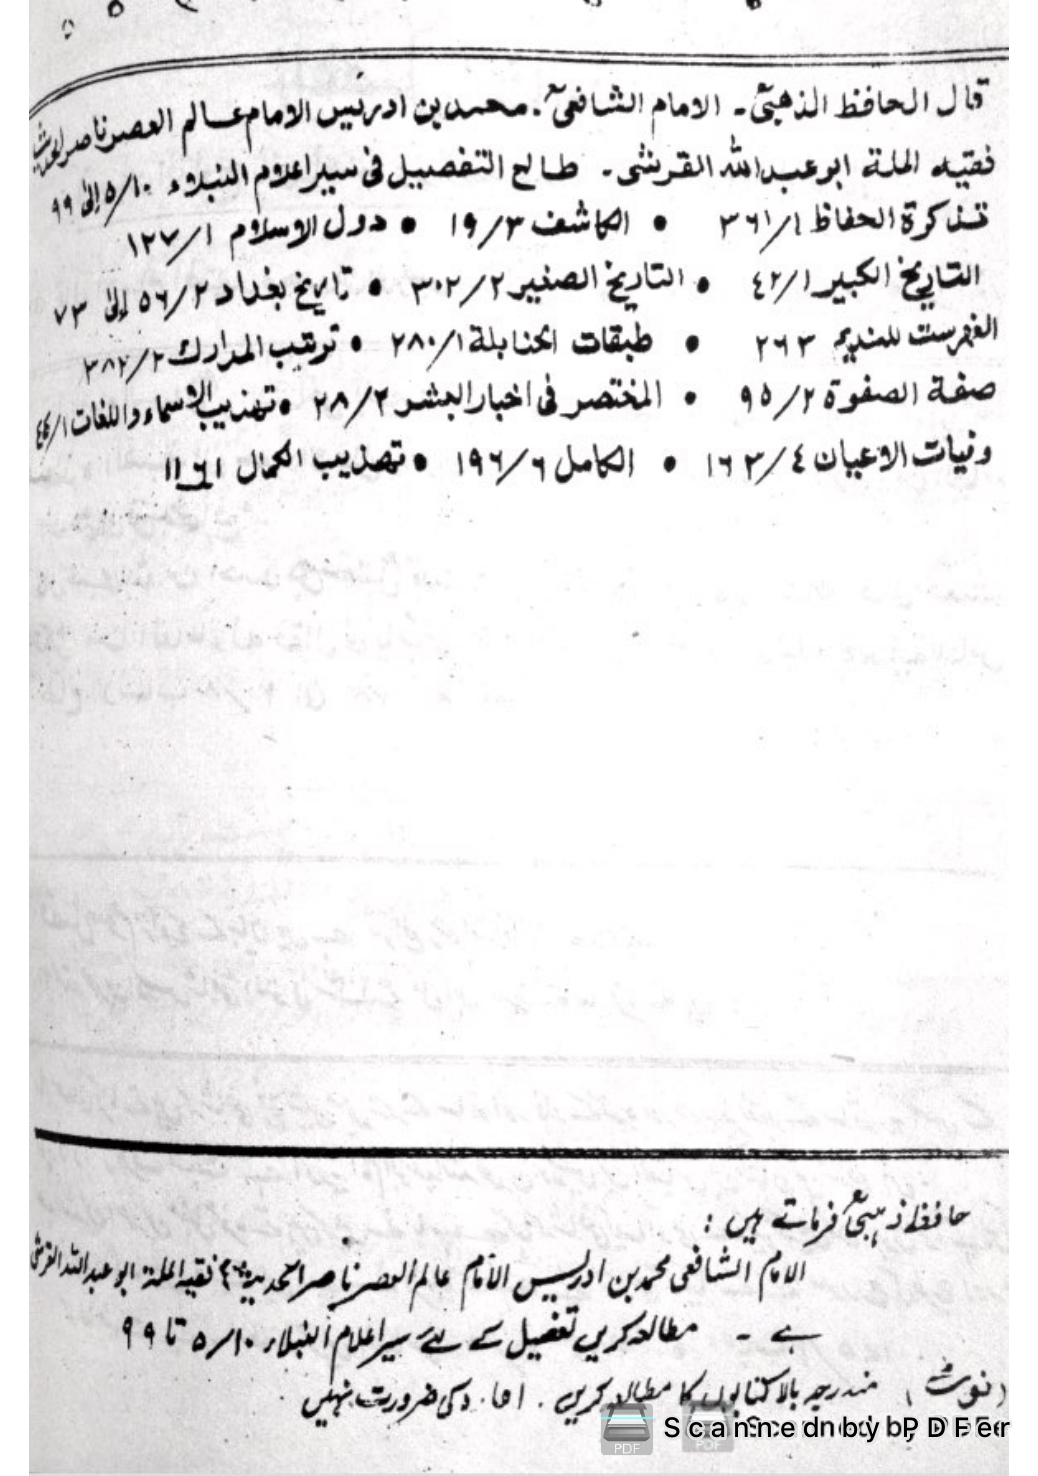 قال الحافظ الذهبیؒ ۔ الامام الشافعیؒ . محمد بن ادریس الامام عالم العصر ناصر الحدیث
فقیہ الملۃ ابو عبداللہ القرشی ۔ طالع التفصیل فی سیر اعلام النبلاء ۵/۱۰ إلی ۹۹
تذکرۃ الحفاظ ۳۶۱/۱ • الکاشف ۱۹/۳ • دول الاسلام ۱۲۷/۱
التاریخ الکبیر ۴۲/۱ • التاریخ الصغیر ۳۰۲/۲ • تاریخ بغداد ۵۶/۲ إلی ۷۳
الفہرست للندیم ۲۶۳ • طبقات الحنابلۃ ۲۸۰/۱ • ترتیب المدارك ۳۸۲/۲
صفۃ الصفوۃ ۹۵/۲ • المختصر فی اخبار البشر ۲۸/۲ • تہذیب الاسماء واللغات ۴۴/۱
وفیات الاعیان ۱۶۳/۴ • الکامل ۱۹۶/۶ • تھذیب الکمال ۱۱۶۱
حافظ ذہبیؒ فرماتے ہیں :
الامام الشافعی محمد بن ادریس الامام عالم العصر ناصر الحدیث فقیہ الملۃ ابو عبد اللہ القرشی
ہے ۔ مطالعہ کریں تفصیل کے لئے سیر اعلام النبلاء ۵/۱۰ تا ۹۹
(نوٹ) مندرجہ بالا کتابوں کا مطالعہ کریں . کی ضرورت نہیں